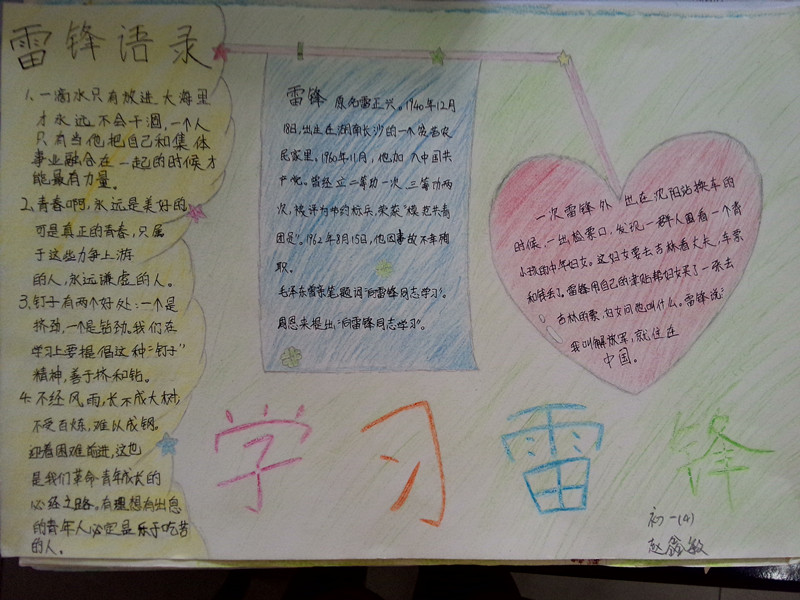 雷锋语录
1、一滴水只有放进大海里
才永远不会干涸,一个人
只有当他把自己和集体
事业融合在一起的时候才
能最有力量。
2、青春啊,永远是美好的
可是真正的青春,只属
于这些力争上游
的人,永远谦虚的人。
3、钉子有两个好处:一个是
挤劲,一个是钻劲,我们在
学习上要提倡这种“钉子”
精神,善于挤和钻。
4、不经风雨,长不成大树,
不受百炼,难以成钢。
迎着困难前进,这也
是我们革命青年成长的
必经之路。有理想有出息
的青年人必定是乐于吃苦
的人。
雷锋 原名雷正兴。1940年12月
18日,出生在湖南长沙的一个贫苦农
民家里、1960年11月,他加入中国共
产党。曾经立二等功一次 三等功两
次,被评为节约标兵,荣获“模范共青
团员”。1962年8月15日,他因事故不幸殉
职。
毛泽东亲笔题词“向雷锋同志学习”。
周恩来提出:“向雷锋同志学习”。
一次雷锋外出在沈阳站换车的
时候,一出检票口,发现一群人围着一个背
小孩的中年妇女。这妇女要去吉林看丈夫,车票
和钱丢了。雷锋用自己的津贴帮妇女买了一张去
吉林的票,妇女问他叫什么。雷锋说:
我叫解放军,就住在
中国。
学习雷锋
初一(4)
赵鑫敏